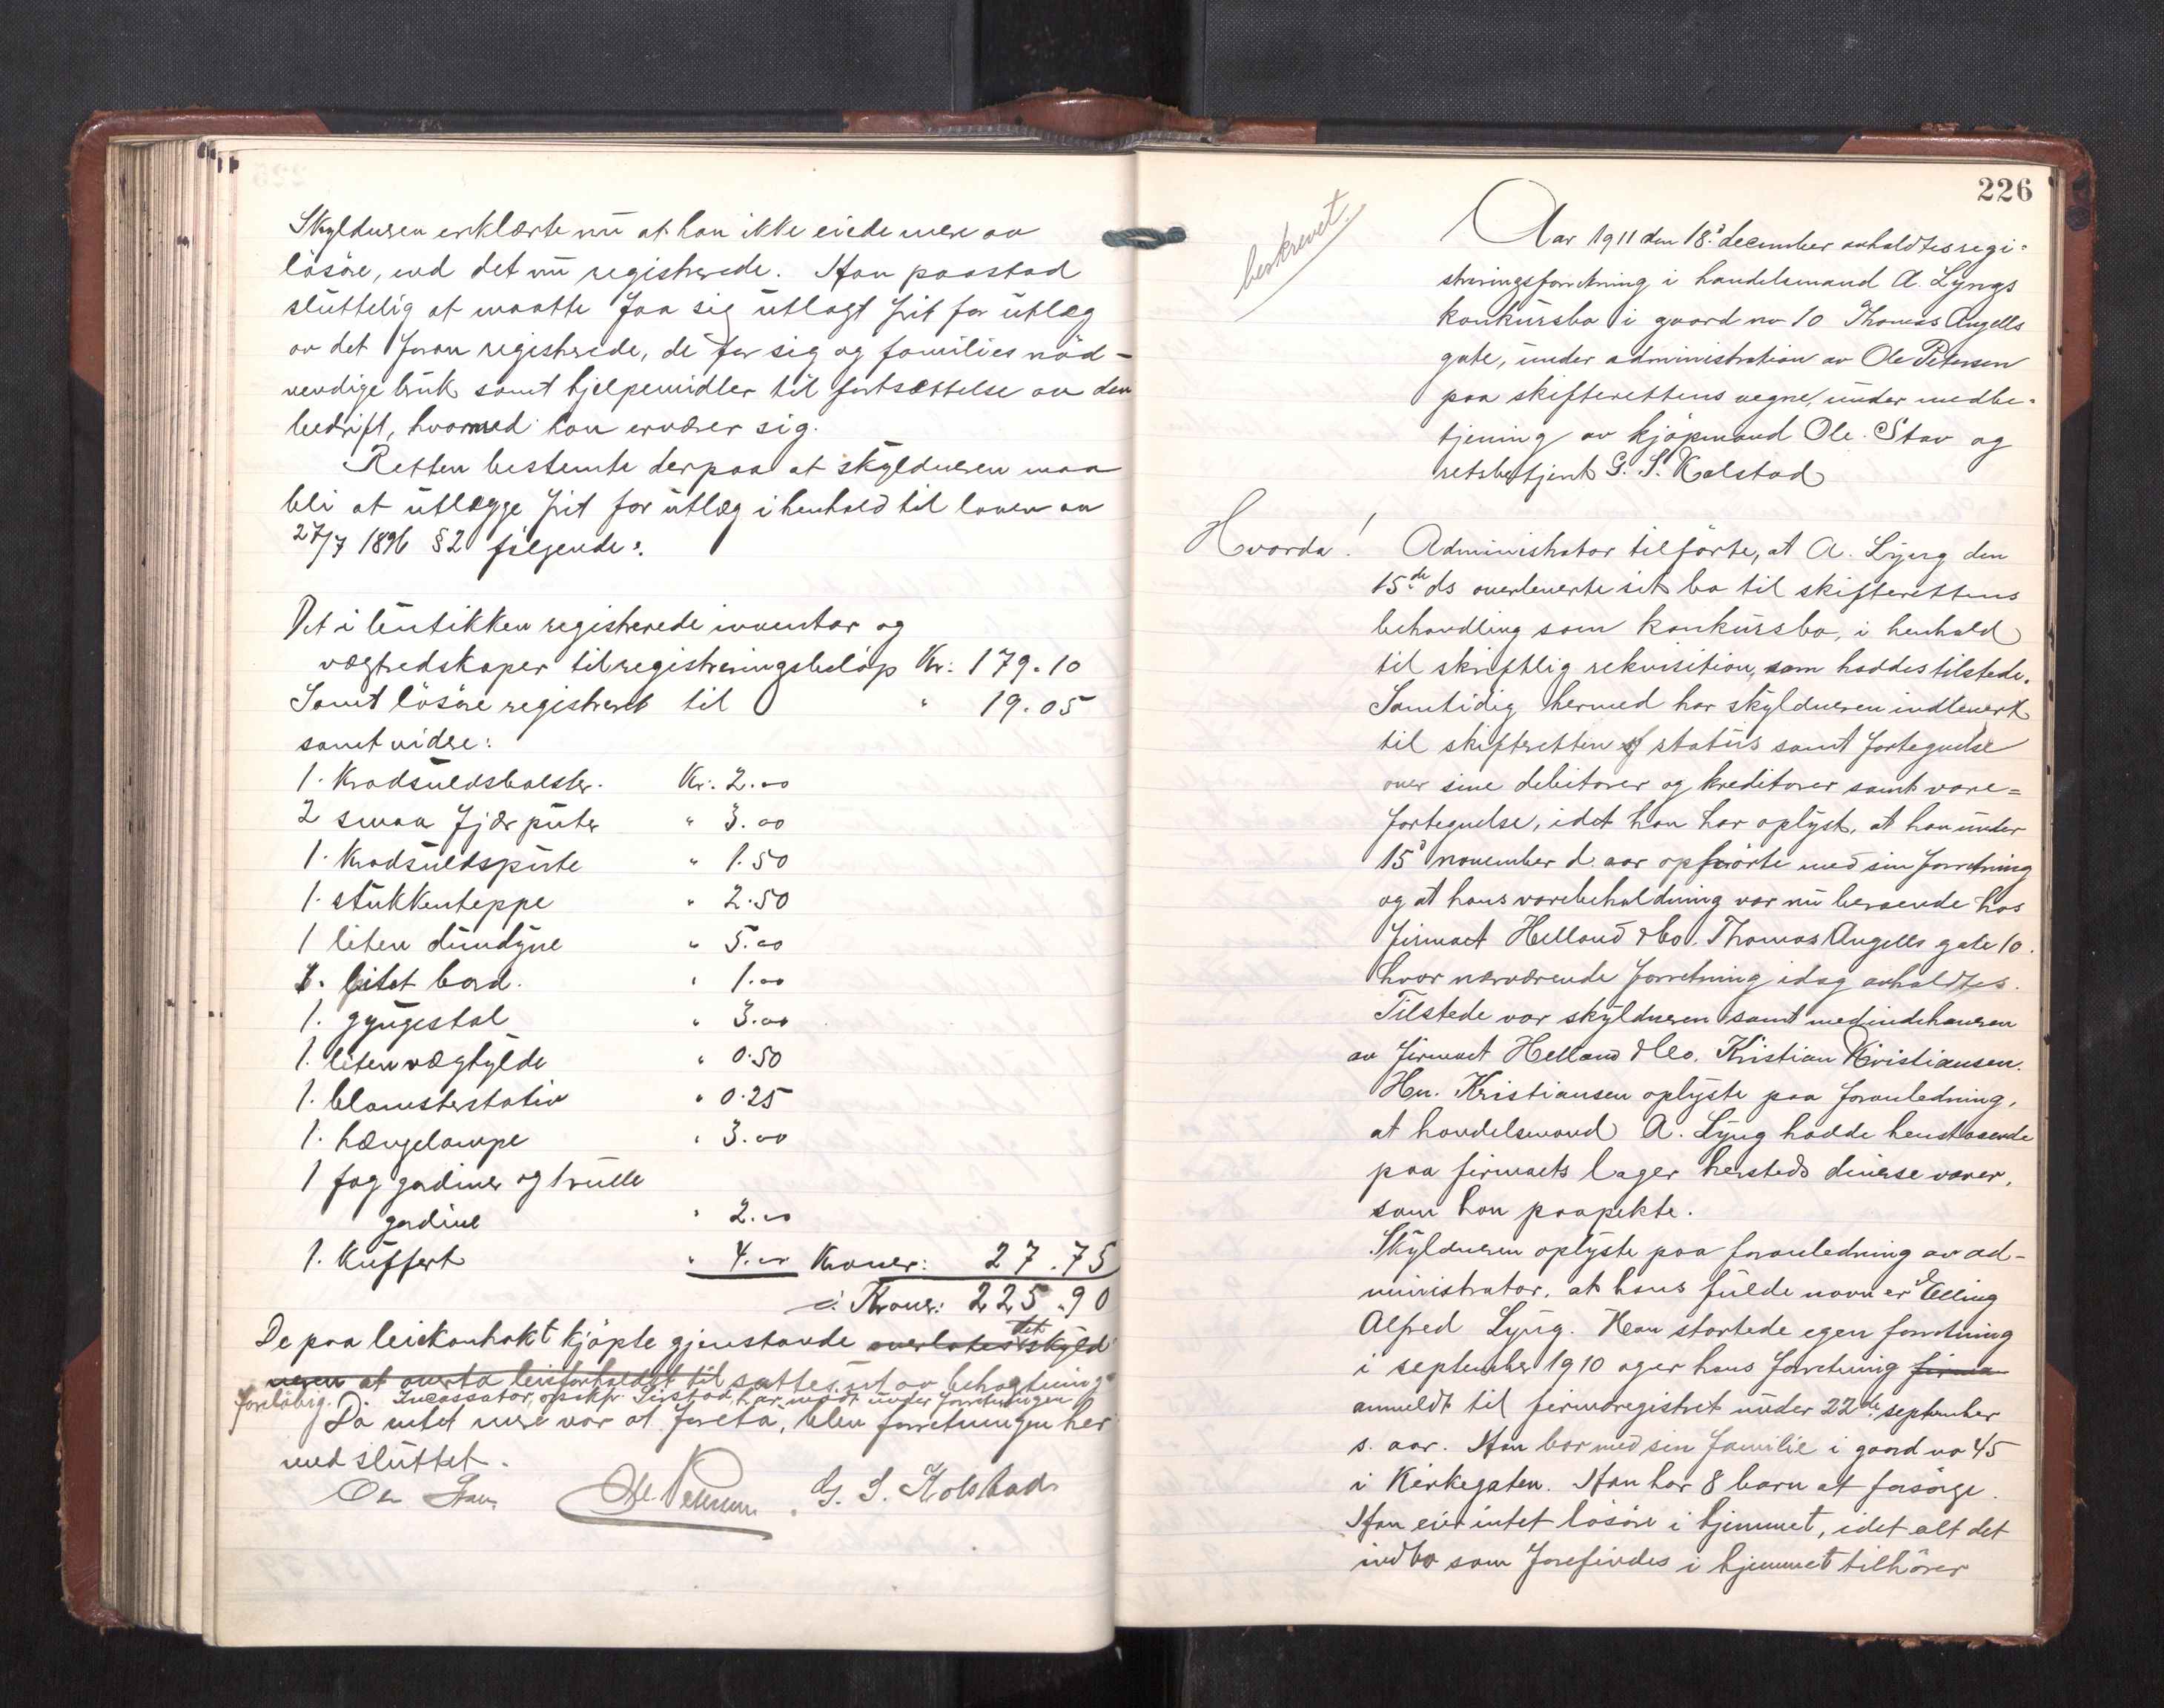 Skyldneren erklærte nu at han ikke eiede mere av
lösöre, end det nu registrerede. Han paastod
sluttelig at maatte faa sig utlagt frit for utlæg
av det foran registrerede, de for sig og families nöd-
vendige bruk samt hjelpemidler til fortsættelse av den
bedrift, hvormed han ernærer sig.
Retten bestemte derpaa at skyldneren maa
bli at utlægge frit for utlæg i henhold til loven av
27/7 1896 § 2 fölgende:
Det i butikken registrerede inventar og
vægtredskaper til registreringsbelöp Kr: 179.10
Samt lösöre registrert til " 19.05
samt videre:
1. Kradsuldsbolster. Kr: 2.00
2 smaa fjær puter " 3.00
1. Kradsuldspute " 1.50
1. stukkenteppe " 2.50
1 liten dundyne " 5.00
1. litet bord. " 1.00
1. gyngestol " 3.00
1. liten væghylde " 0.50
1. blomsterstativ " 0.25
1. hængelampe " 3.00
1 fag gardiner og 1 rulle
gardine " 2.00
1. Kuffert " 4.00 Kroner: 27.75
: Kroner: 225.90
De paa leiekontrakt kjöpte gjenstande overlates det skyld
neren at overta leieforholdet til sattes ut av behagtning
forelöbig. Incassator, opsskr. Sirstad, har mödt under forretningen
Da intet mere var at foreta, blev forretningen her
med sluttet.
Ole Stav Ole Petersen G. S. Kolstad
226
beskrevet
Aar 1911 den 18. december avholdtes regi-
streringsforretning i handelsmand A. Lyngs
konkursbo i gaard no 10 Thomas Angells
gate, under administration av Ole Petersen
paa skifterettens vegne, under medbe-
tjening av kjöpmand Ole Stav og
retsbetjent G. S. Kolstad
Hvorda! Administrator tilförte, at A. Lyng den
15de ds overleverte sit bo til skifterettens
behandling som konkursbo, i henhold
til skriftlig rekvisition, som haddes tilstede.
Samtidig hermed har skyldneren indlevert
til skifteretten status samt fortegnelse
over sine debitorer og kreditorer samt vare-
fortegnelse, idet han har oplyst, at han under
15 november d. aar ophörte med sin forretning
og at hans varebeholdning var nu beroende hos
firmaet Helland & Co. Thomas Angells gate 10.
hvor nærværende forretning idag avholdtes.
Tilstede var skyldneren samt medindehaveren
av firmaet Helland & Co. Kristian Kristiansen.
Hr. Kristiansen oplyste paa foranledning,
at handelsmand A. Lyng hadde henstaaende
paa firmaets lager hersteds diverse varer,
som han paapekte.
Skyldneren oplyste paa foranledning av ad-
ministrator, at hans fulde navn er Elling
Alfred Lyng. Han startede egen forretning
i september 1910 og er hans forretning firma
anmeldt til firmaregistret under 22de september
s. aar. Han bor med sin familie i gaard no 45
i Kirkegaten. Han har 8 barn at forsörge.
Han eier intet lösöre i hjemmet, idet alt det
indbo som forefindes i hjemmet tilhörer